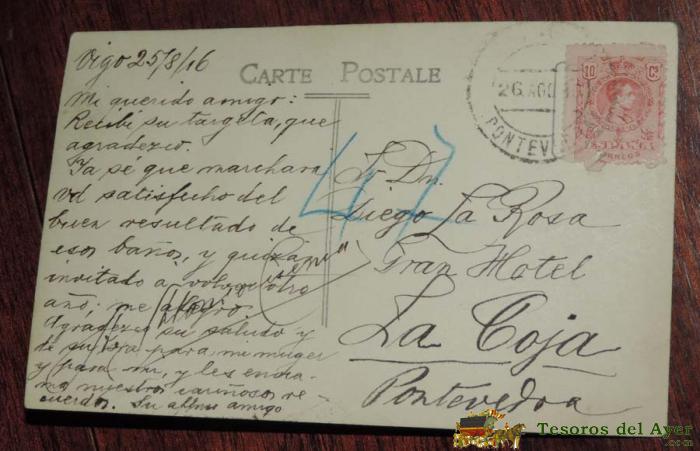 Vigo 25/8/16
CARTE POSTALE
Mi querido amigo:
Recibí su targeta, que
agradezco.
Ya sé que marchara
vd satisfecho del
buen resultado de
esos baños, y quizá
invitado a volver otro
año; me alegro
Agradezco su saludo y
de su Sra para mi muger
y para mi, y les envia
mos nuestros cariñosos re
cuerdos. Su affmo amigo
47
Sr Dn
Diego La Rosa
Gran Hotel
La Toja
Pontevedra
26 AGO
PONTEVE
10 Cs
ESPAÑA
CORREOS
Tesoros del Ayer
.com